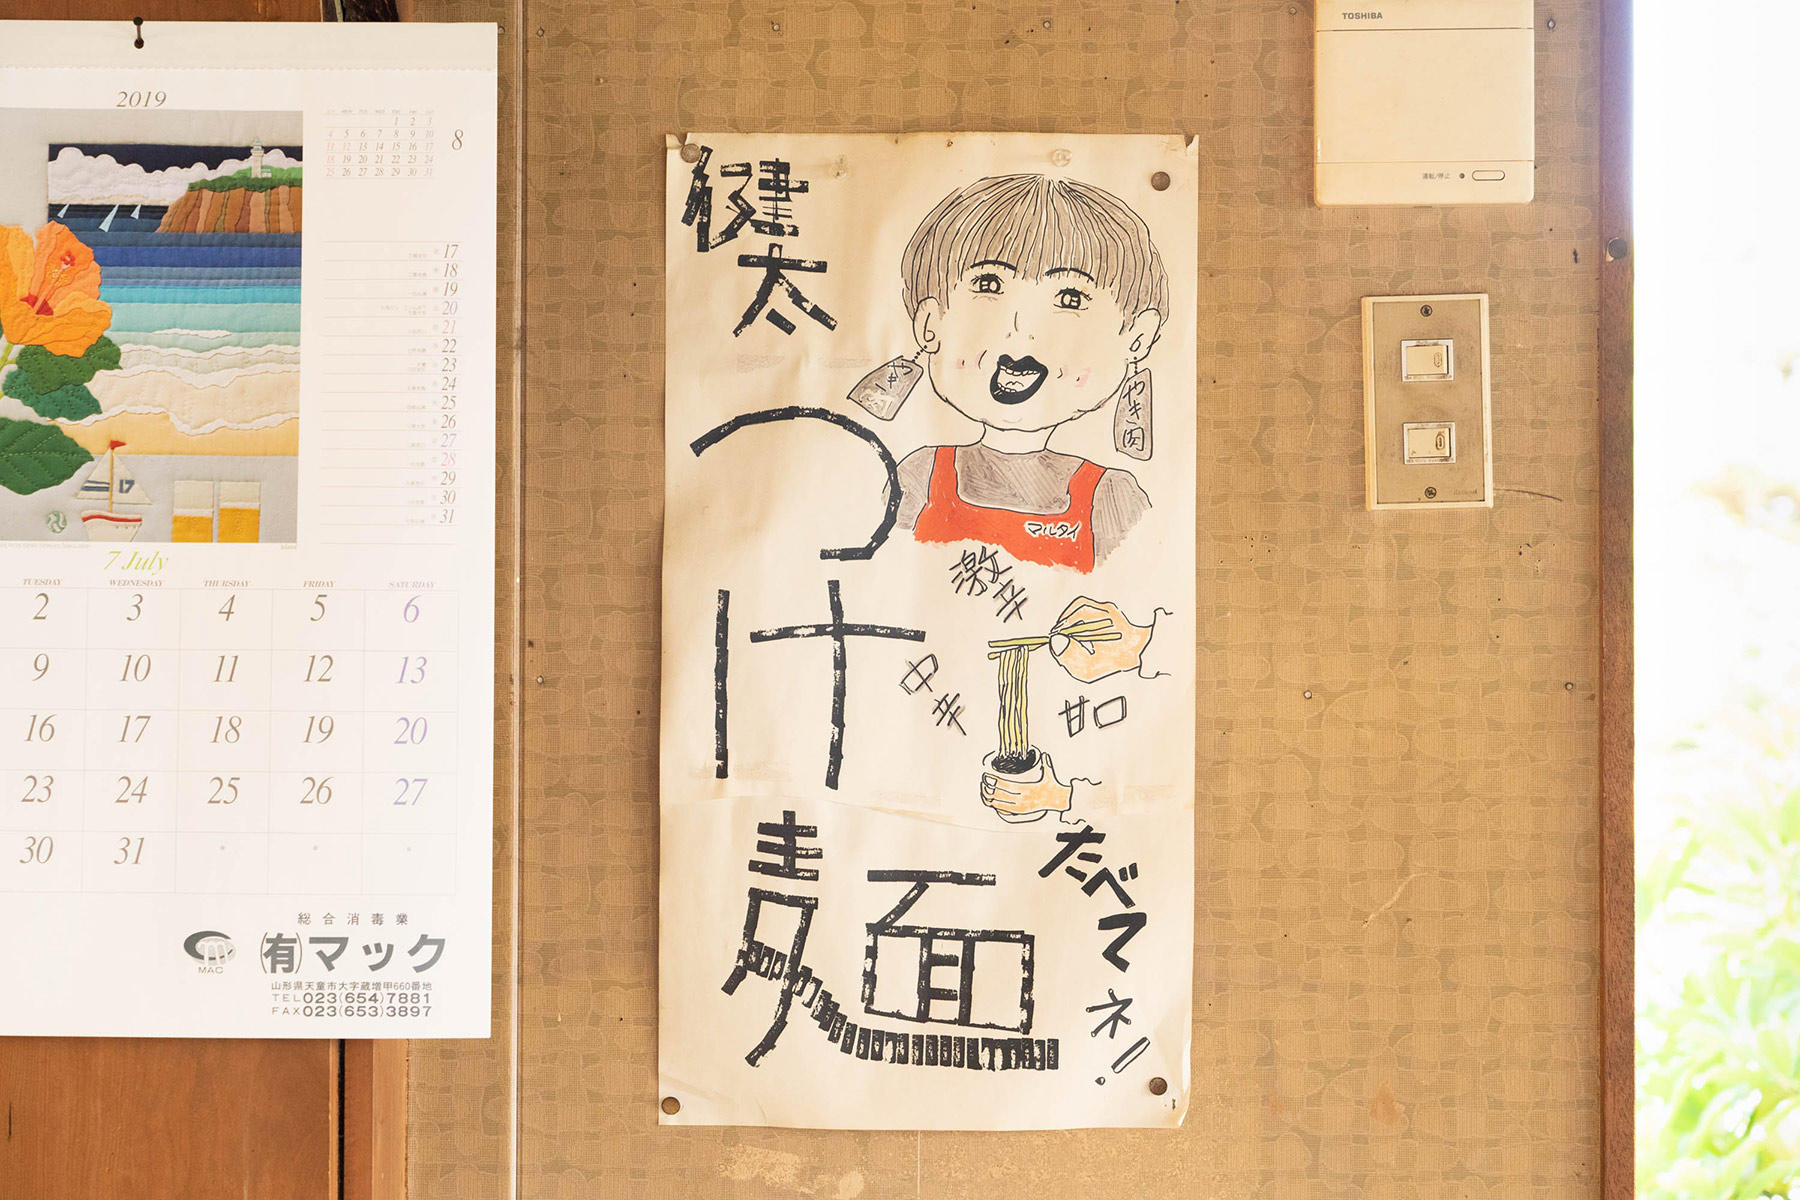 2019
8
1 2 3
4 5 6 7 8 9 10
11 12 13 14 15 16 17
18 19 20 21 22 23 24
25 26 27 28 29 30 31
17
18
19
20
21
22
23
24
25
26
27
28
29
30
31
17
7 July
TUESDAY WEDNESDAY THURSDAY FRIDAY SATURDAY
2 3 4 5 6
9 10 11 12 13
16 17 18 19 20
23 24 25 26 27
30 31
総合消毒業
MAC
(有)マック
山形県天童市大字蔵増甲660番地
TEL 023(654)7881
FAX 023(653)3897
健太
つけ
麺
やき肉
マルタイ
激辛
中辛
甘口
たべてネ!
TOSHIBA
運転/停止